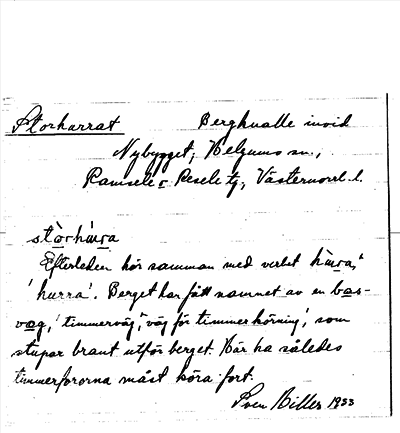 Storhurrat Bergknalle invid
Nybygget, Helgums sn,
Ramsele o. Resele tg, Västernorrl. l.
stòrhùra
Efterleden hör samman med verbet hùra,
'hurra'. Berget har fått namnet av en bas-
vag, 'timmerväg', 'väg för timmerkörning', som
stupar brant utför berget. Här ha således
timmerfororna måst köra fort.
Sven Billes 1933